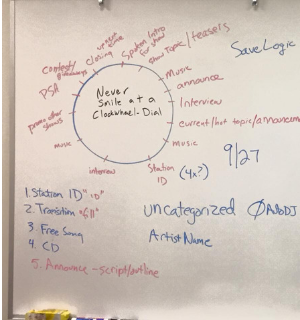 Never
Smile at a
Clockwheel-Dial
Station Intro
for show
Show Topic/teasers
Music
announce
Interview
current/hot topic/announcement
music
Station
ID (4x?)
interview
music
promo other
shows
PSA
Contest/
giveaways
closing
Save Logic
9/27
1. Station ID "ID"
2. Transition
3. Free Song
4. CD
5. Announce - script/outline
Uncategorized ØAutoDJ
Artist Name